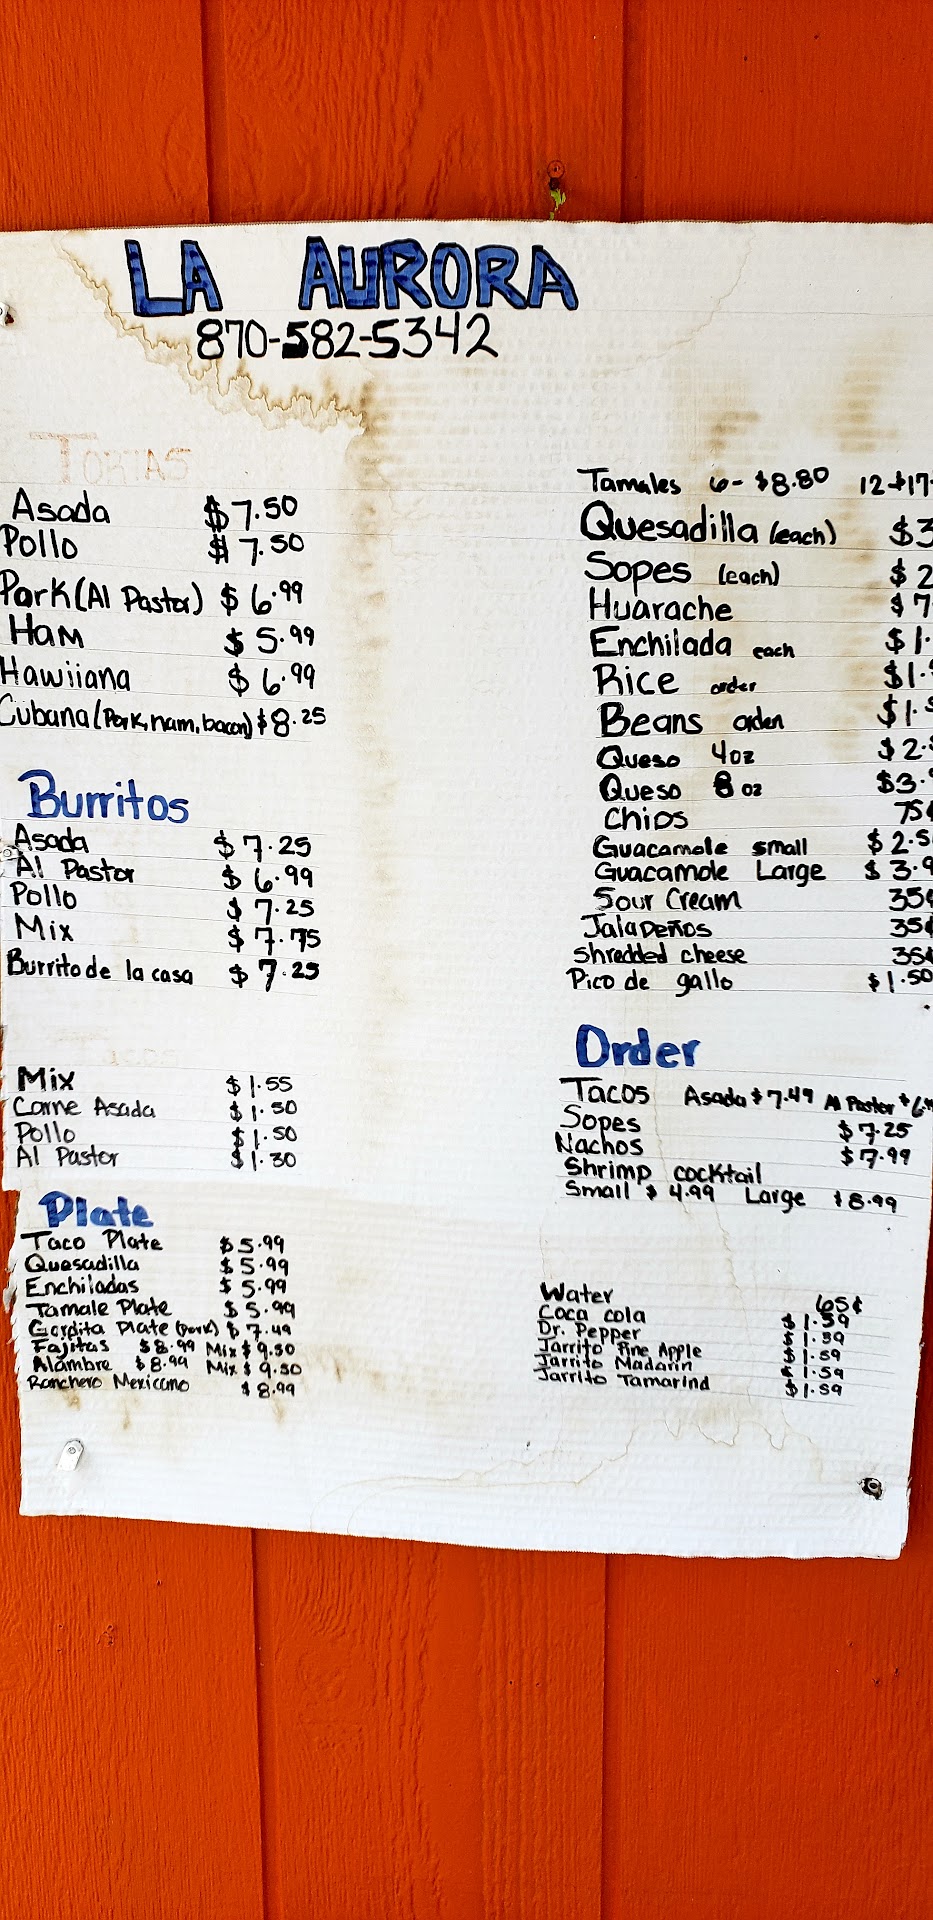 LA AURORA
870-582-5342
TORTAS
Asada $7.50
Pollo $7.50
Pork (Al Pastor) $6.99
Ham $5.99
Hawiiana $6.99
Cubana (Pork, ham, bacon) $8.25
Burritos
Asada $7.25
Al Pastor $6.99
Pollo $7.25
Mix $7.75
Burrito de la casa $7.25
Mix $1.55
Carne Asada $1.50
Pollo $1.50
Al Pastor $1.30
Plate
Taco Plate $5.99
Quesadilla $5.99
Enchiladas $5.99
Tamale Plate $5.99
Gordita Plate (pork) $7.49
Fajitas $8.99 Mix $9.50
Alambre $8.99 Mix $9.50
Ranchero Mexicano $8.99
Tamales 6- $8.80 12-$17
Quesadilla (each) $3
Sopes (each) $2
Huarache $7
Enchilada each $1.
Rice order $1.
Beans orden $1.
Queso 4oz $2.
Queso 8oz $3.
Chips 75¢
Guacamole small $2.5
Guacamole Large $3.9
Sour Cream 35¢
Jalapeños 35¢
Shredded cheese 35¢
Pico de gallo $1.50
Order
Tacos Asada $7.49 Al Pastor $6.
Sopes $7.25
Nachos $7.99
Shrimp cocktail
Small $4.99 Large $8.99
Water 65¢
Coca cola $1.59
Dr. Pepper $1.59
Jarrito Pine Apple $1.59
Jarrito Madarin $1.59
Jarrito Tamarind $1.59